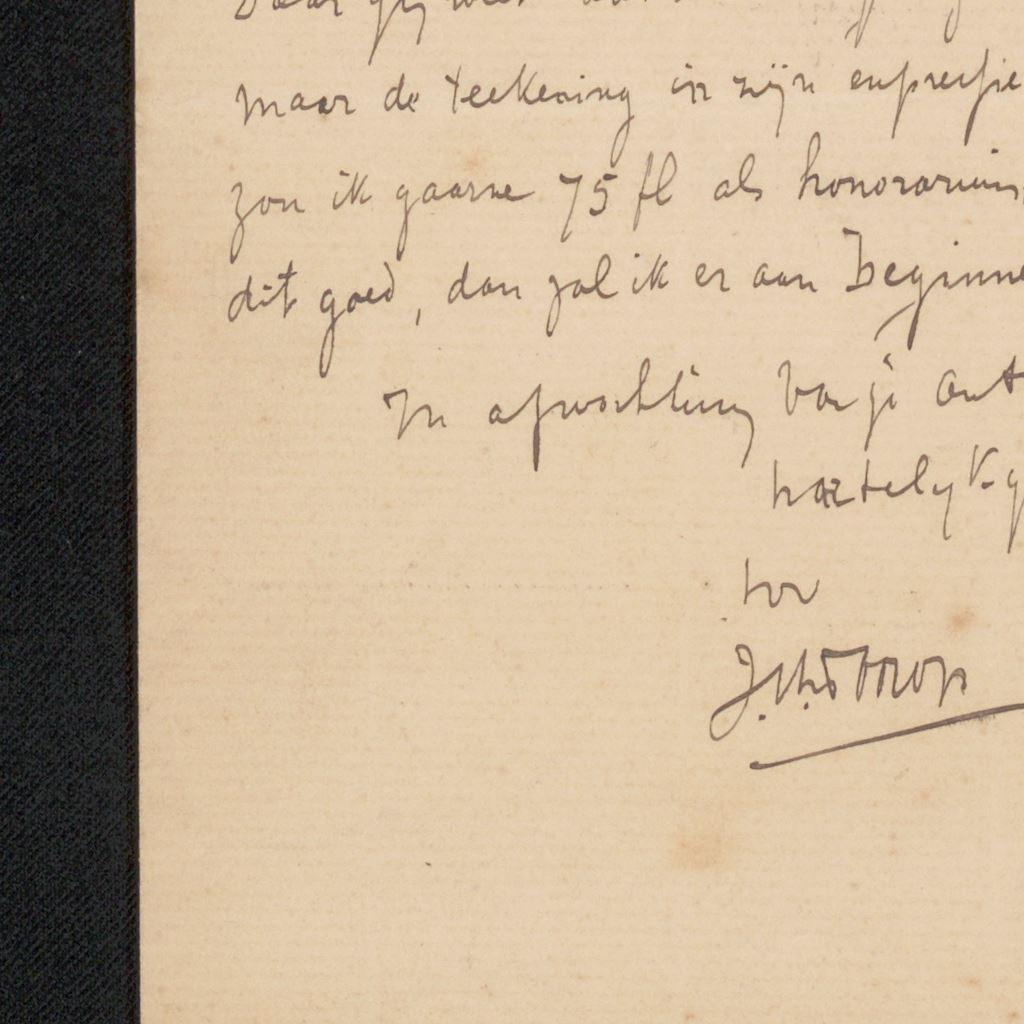 maar de teekening in zijn expressie
zou ik gaarne 75 fl als honorarium
dit goed, dan zal ik er aan beginne
In afwachting van je ant
hartelyk g
tor
J.Th.Toorop